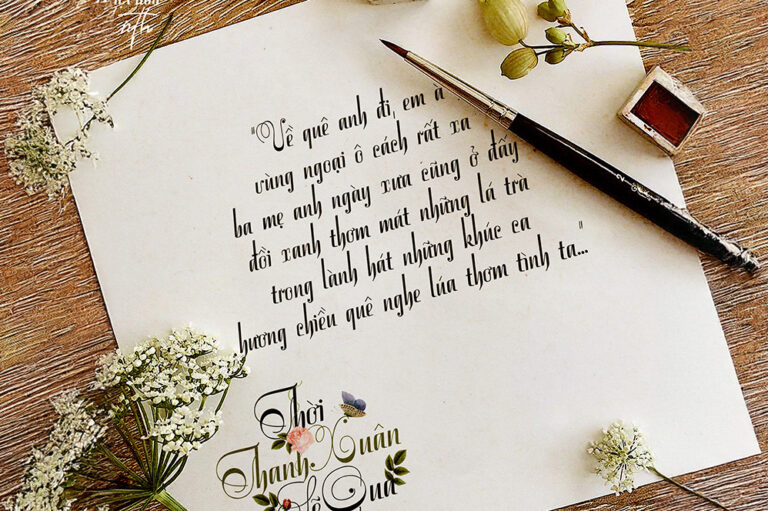 "Về quê anh đi em à
vùng ngoại ô cách rất xa
ba mẹ anh ngày xưa cũng ở đấy
đồi xanh thơm mát những lá trà
trong lành hát những khúc ca
hương chiều quê nghe lúa thơm tình ta..."
Thời
Thanh Xuân
Qua